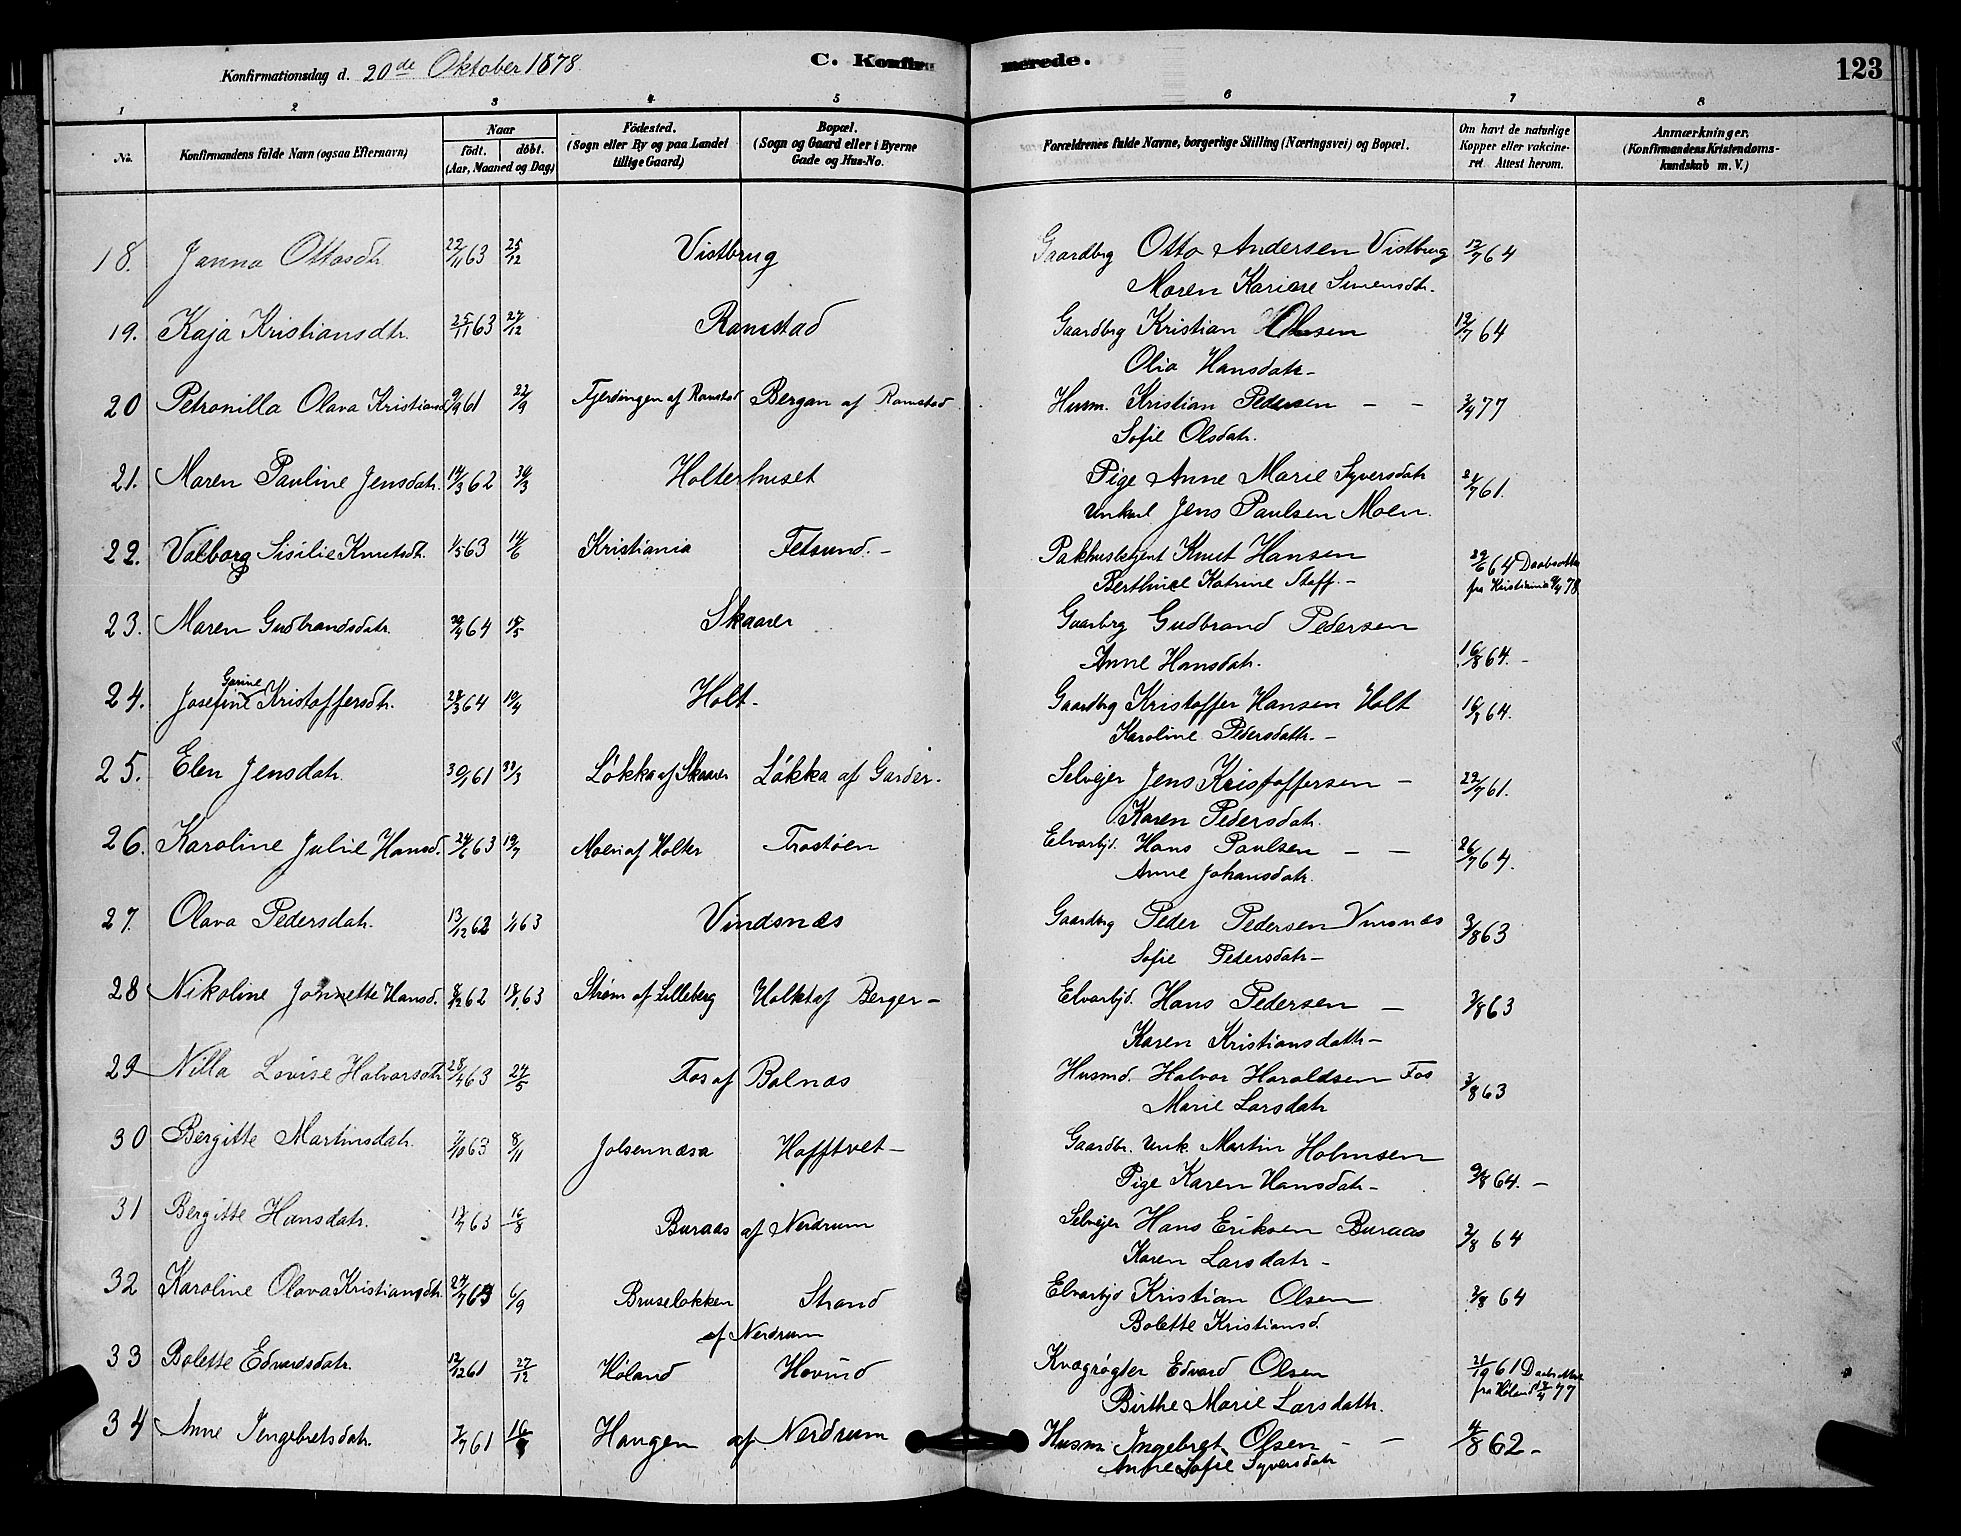 Konfirmationsdag d. 20de Oktober 1878. C. Konfirmerede. 123
1 2 3 4 5 6 7 8
No. Konfirmandens fulde Navn (ogsaa Efternavn) Naar födt. döbt. (Aar, Maaned og Dag) Födested. (Sogn eller By og paa Landet tillige Gaard) Bopæl. (Sogn og Gaard eller i Byerne Gade og Hus-No. Forældrenes fulde Navne, borgerlige Stilling (Næringsvei) og Bopæl. Om havt de naturlige Kopper eller vakcineret. Attest herom. Anmærkninger. (Konfirmandens Kristendomskundskab m. V.)
18. Janna Ottosdtr 22/11 63 25/12 Vistbrug Gaardbrg Otto Andersen Vistbrug 12/7 64
Maren Karine Simensdtr.
19. Kaja Kristiansdtr. 25/11 63 27/12 Ramstad Gaardbrg Kristian Olsen 12/7 64
Olia Hansdatr-
20 Petronilla Olava Kristiansd 9/9 61 22/9 Fjerdingen af Ramstad Bergan af Ramstad Husm. Kristian Pedersen - - 3/4 77
Sofie Olsdatr.
21. Maren Pauline Jensdatr. 14/3 62 30/3 Holterhuset Pige Anne Marie Syversdatr
Unkarl Jens Paulsen Moen. 2/7 61.
22. Valborg Sisilie Knutsdt. 1/5 63 14/6 Kristiania Fetsund.- Pakhusbetjent Knut Hansen 29/6 64 Daabsattst
Berthine Katrine Staff.- fra Kristiania 9/4 78
23. Maren Gudbrandsdatr. 20/4 64 15/5 Skaarer Gaarbrg Gudbrand Pedersen
Anne Hansdatr. 16/8 64.-
24. Josefine Garine Kristoffersdtr. 24/3 64 10/4 Holt. Gaardbrg Kristoffer Hansen Holt 16/8 64.
Karoline Pedersdattr.-
25. Elen Jensdatr. 30/1 61 31/3 Løkka af Skaarer Løkka af Garder- Selvejer Jens Kristoffersen - 22/7 61.
Karen Pedersdatr.
26. Karoline Julie Hansd. 24/6 63 19/7 Moen af Holter Trostøen Elvarbjd. Hans Paulsen - - 26/7 64.
Anne Johansdatr.
27. Olava Pedersdatr. 13/12 62 1/1 63 Vindsnæs Gaardbrg Peder Pedersen Vinsnæs 3/8 63
Sofie Pedersdatr-
28 Nikoline Jonnette Hansd. 8/12 62 18/1 63 Strøm af Lilleberg Holkt af Berger- Elvarbjd. Hans Pedersen - 3/8 63
Karen Kristiansdattr-
29 Nilla Lovise Halvorsdtr 28/4 63 24/5 Fos af Balnæs Husmd. Halvor Haraldsen Fos 3/8 63
Marie Larsdatr
30 Bergitte Martinsdatr. 7/10 63 8/11 Jølsennæsa Hofftvet- Gaardbr. Unk. Martin Holmsen
Pige Karen Hansdatr- 9/8 64.-
31 Bergitte Hansdatr. 13/7 63 16/8 Buraas af Nerdrum Selvejer Hans Eriksen Buraas 2/8 64
Karen Larsdatr-
32 Karoline Olava Kristiansdtr. 24/7 63 6/9 Bruseløkken Strand Elvarbjd Kristian Olsen 2/8 64
af Nerdrum Bolette Kristiansd.
33 Bolette Edvardsdatr. 12/12 61 27/12 Høland Hovind Kvægrøgter Edvard Olsen 61 Daabsattst
Birthe Marie Larsdattr. fra Høland 77
34 Anne Ingebretsdatr. 7/7 61 16/ Haugen af Nerdrum Husm Ingebret Olsen - - 4/8 62-
Anne Sofie Syversdatr